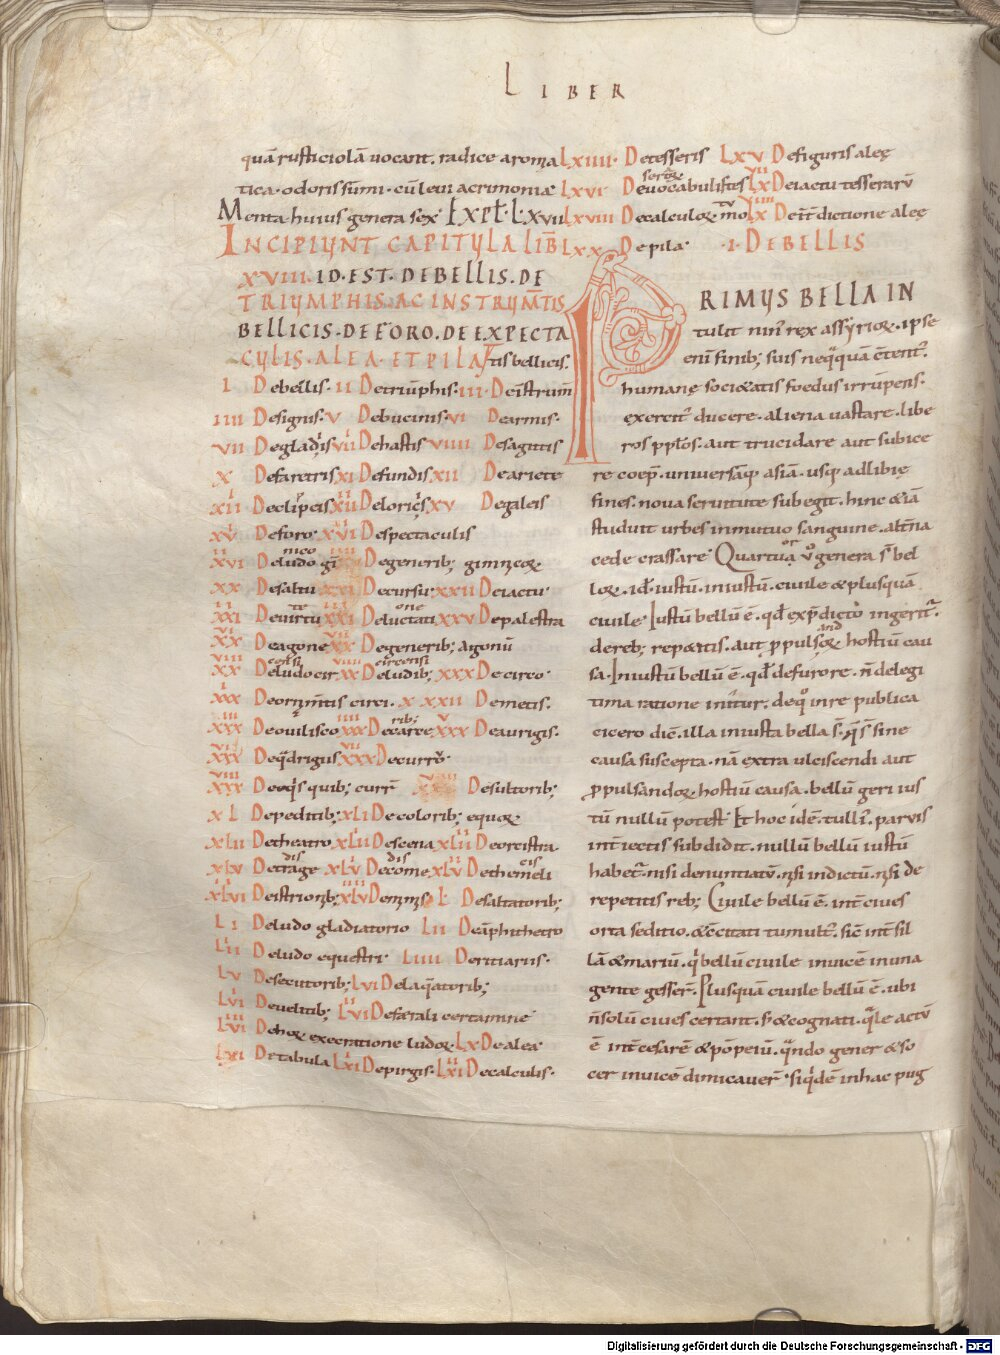 LIBER
quā rusticiolā uocant. radice aroma
tica. odoris sūmi. cū leui acrimoniæ
Menta huius genera sex Expƚ. L. xvii
INCIPIUNT CAPITULA LIB̄
XVIII. ID. EST. DE BELLIS. DE
TRIUMPHIS. AC INSTRUM̄TIS
BELLICIS. DE FORO. DE EXPECTA
CULIS. ALEA. ET PILA
I De bellis. II De triūphis. III. De īstrum̄tis bellicis.
IIII De signis. V De bucinis. VI De armis.
VII De gladiis VIII De hastis VIIII De sagittis
X De faretris XI De fundis XII De ariete
XIII De clipeis XIIII De loricis XV De galeis
XVI De foro. XVII De spectaculis
XVIII De ludo gim̄nico XVIIII De generib; gimnicoꝝ
XX De saltu XXI De cursu. XXII De iactu.
XXIII De uirtute XXIIII De luctatione XXV De palestra
XXVI De agone XXVII De generib; agonū
XXVIII De ludo circensi XXVIIII De ludib; circensi XXX De circo.
XXXI De ornam̄tis circi. XXXII De metis.
XXXIII De ouilisco XXXIIII De carcerib; XXXV De aurigis.
XXXVI De qͣdrigiis XXXVII De currū.
XXXVIII De eqͥs quib; curr̄ De sultorib;
XL De peditib; XLI De colorib; equoꝝ
XLII De theatro XLIII De scena XLIIII De orcistra
De tragedis De comedis De themelicis
De istrionib; De mimis L De saltatorib;
LI De ludo gladiatorio LII De āphitheatro
LIII De ludo equestri. LIIII De ritiariis.
LV De secutorib; LVI De laqueatorib;
LVII De uelitib; LVIII De ferali certamine
LVIIII De horꝝ execratione ludoꝝ LX De alea
LXI De tabula LXII De pirgis. LXIII De calculis.
LXIIII. De tesseris LXV De figuris aleę
LXVI De uocabulis tesserarū LXVII De iactu tesserarū
LXVIII De calculoꝝ motu LXVIIII De īt̄dictione aleę
LXX De pila. I. DE BELLIS
PRIMUS BELLA IN
tulit nin' rex assyrioꝝ. ipse
eni finib; suis neqͣquā c̄tent'.
humanę societatis foedus irrūpens.
exercit' ducere. aliena uastare. libe
ros pplos. aut trucidare aut subice
re coep̄. uniuersāq; asiā. usq; ad libię
fines. noua seruitute subegit. hinc &iā
studuit urbes in mutuo sanguine. alt̄na
cede crassare. Quattuor aū genera s̄ bel
loꝝ. id. iustū. iniustū. ciuile & plusquā
ciuile. Iustū bellū ē. qd̄ exp̄dicto ingerit'.
de reb; repetitis. aut ppulsandoꝝ hostiū cau
sa. Iniustū bellū ē. qd̄ de furore. n̄ de legi
tima ratione initur. de qͦ in re publica
cicero dic̄. illa iniusta bella s̄. quę s̄ sine
causa suscepta. nā extra ulciscendi aut
ppulsandoꝝ. hostiū causa. bellū geri ius
tū nullū potest. Et hoc idē. tulli'. paruis
int̄iectis subdidit. nullū bellū iustū
habet'. nisi denuntiatū. nisi indictū. nisi de
repetitis reb; Ciuile bellū ē. int̄ ciues
orta seditio. & c̄citati tumult'. sic int̄ sil
lā & mariū. qͥ bellū ciuile inuicē in una
gente gesser̄. Plusquā ciuile bellū ē. ubi
n̄ solū ciues certant. s̄ & cognati. qͣle actū
ē int̄ cesarē & pōpeiū. qͣndo gener & so
cer inuicē dimicauer̄. siqͥdē in hac pug
Digitalisierung gefördert durch die Deutsche Forschungsgemeinschaft - DFG